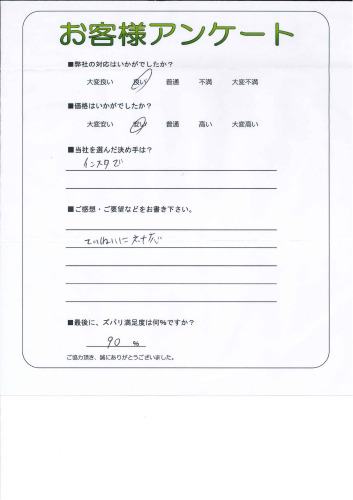 お客様アンケート
■弊社の対応はいかがでしたか？
大変良い 良い 普通 不満 大変不満
■価格はいかがでしたか？
大変安い 安い 普通 高い 大変高い
■当社を選んだ決め手は？
インスタで
■ご感想・ご要望などをお書き下さい。
ていねいに対応
■最後に、ズバリ満足度は何％ですか？
90 ％
ご協力頂き、誠にありがとうございました。